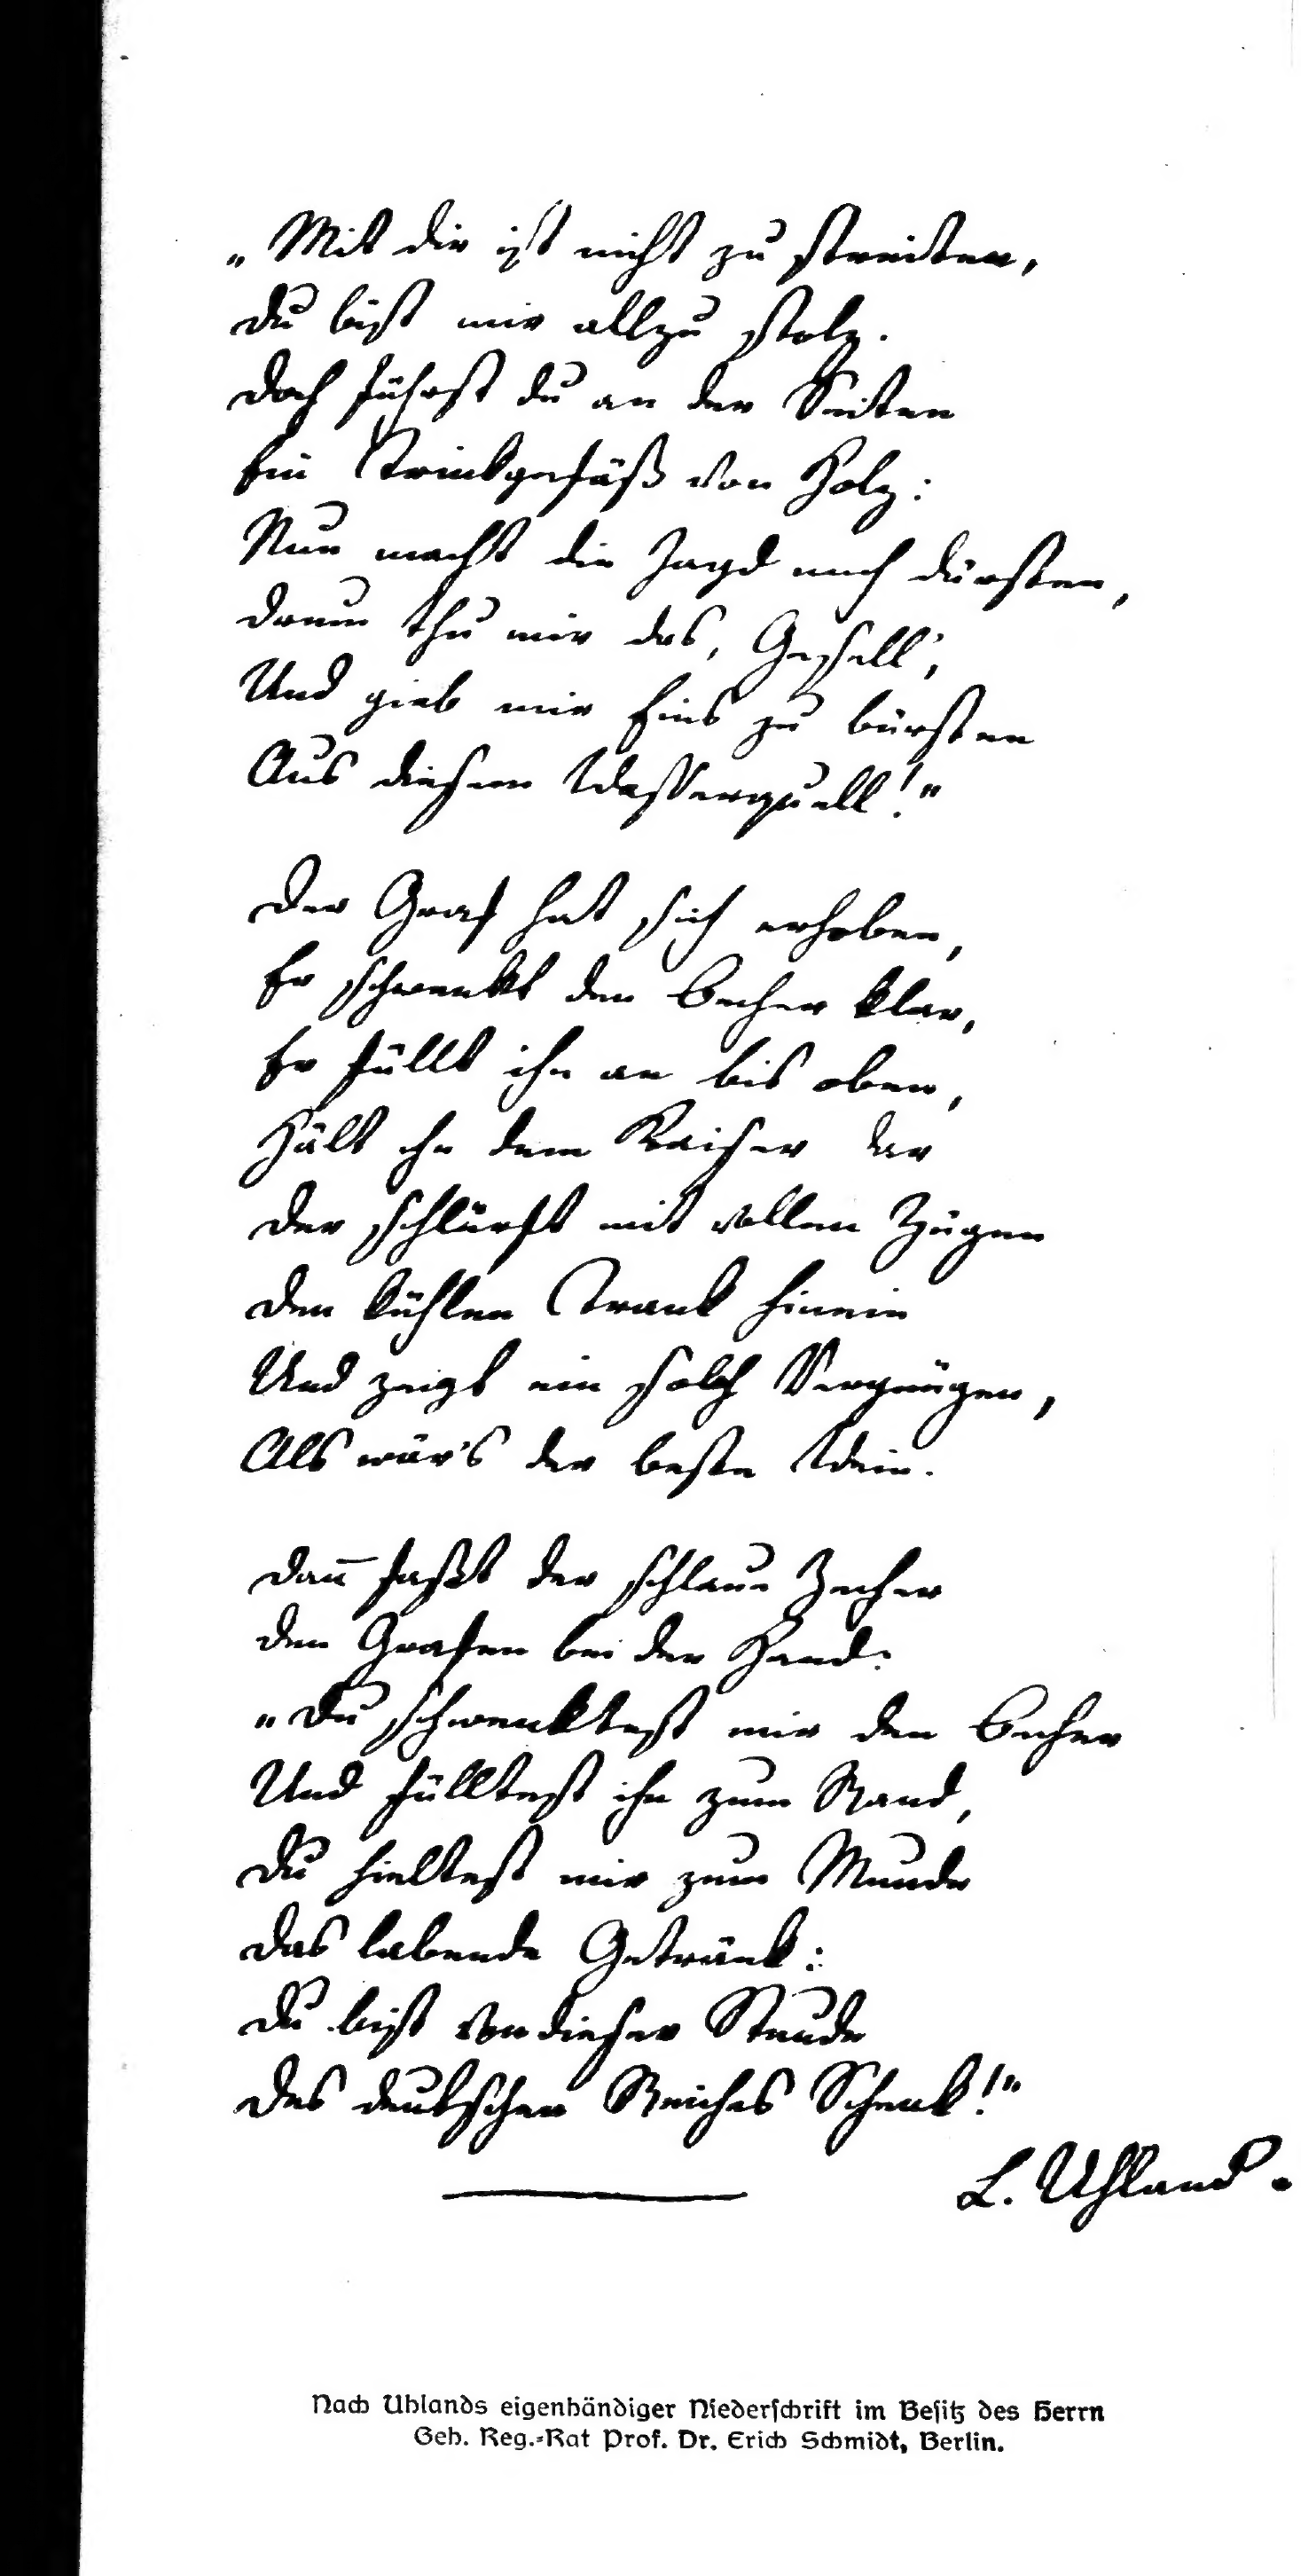 „Mit dir ist nicht zu streiten,
Du bist mir allzu stolz.
Doch führst du an der Seiten
Ein Trinkgefäß von Holz:
Nun macht die Jagd mich dürsten,
Drum thu mir das, Gesell',
Und gieb mir Eins zu bürsten
Aus diesem Wasserquell!"
Der Graf hat sich erhoben,
Er schwenkt den Becher klar,
Er füllt ihn an bis oben,
Hält ihn dem Kaiser dar
Der schlürft mit vollen Zügen
Den kühlen Trank hinein
Und zeigt ein solch Vergnügen,
Als wär's der beste Wein.
Dann̄ faßt der schlaue Zecher
Den Grafen bei der Hand:
„Du schwenktest mir den Becher
Und fülltest ihn zum Rand,
Du hieltest mir zum Munde
Das labende Getränk:
Du bist von dieser Stunde
Des deutschen Reiches Schenk!"
L. Uhland.
Nach Uhlands eigenhändiger Niederschrift im Besitz des Herrn
Geh. Reg.-Rat Prof. Dr. Erich Schmidt, Berlin.